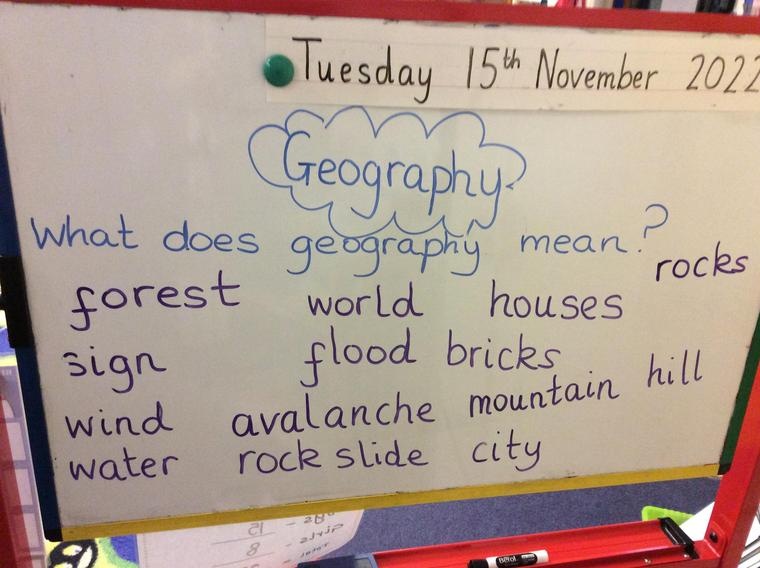 Tuesday 15th November 2022
Geography
What does geography mean?
rocks
forest world houses
sign flood bricks
wind avalanche mountain hill
water rock slide city
15
8
Berol